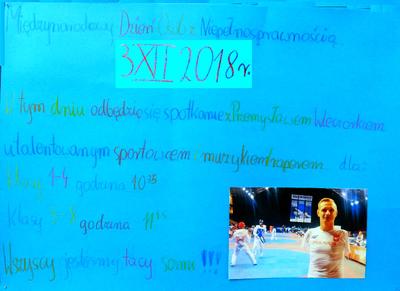 Międzynarodowy Dzień Osób z Niepełnosprawnością
3 XII 2018 r.
W tym dniu odbędzie się spotkanie z Przemysławem Wieczorkiem
utalentowanym sportowcem i muzykiem traperem dla:
Klasy 1-4 godzina 10
Klasy godzina 11
Wszyscy jesteśmy tacy sami !!!